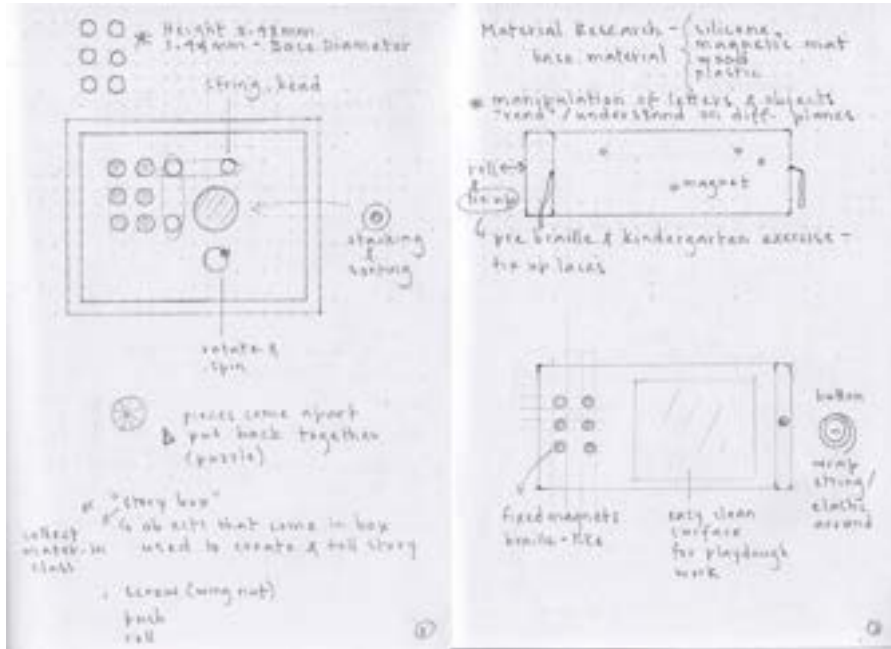 Height 0.48mm
1.44mm - Base Diameter
string, bead
stacking
&
sorting
rotate &
spin
pieces come apart
put back together
(puzzle)
"story box"
objects that come in box
used to create & tell story
collect
class
screw (wing nut)
push
roll
Material Research - silicone
base material magnetic mat
wood
plastic
* manipulation of letters & objects
"read"/understand on diff. planes
roll
&
tie up
magnet
pre braille & kindergarten exercise -
tie up laces
button
wrap
string/
elastic
around
fixed magnets
braille-like
easy clean
surface
for playdough
work